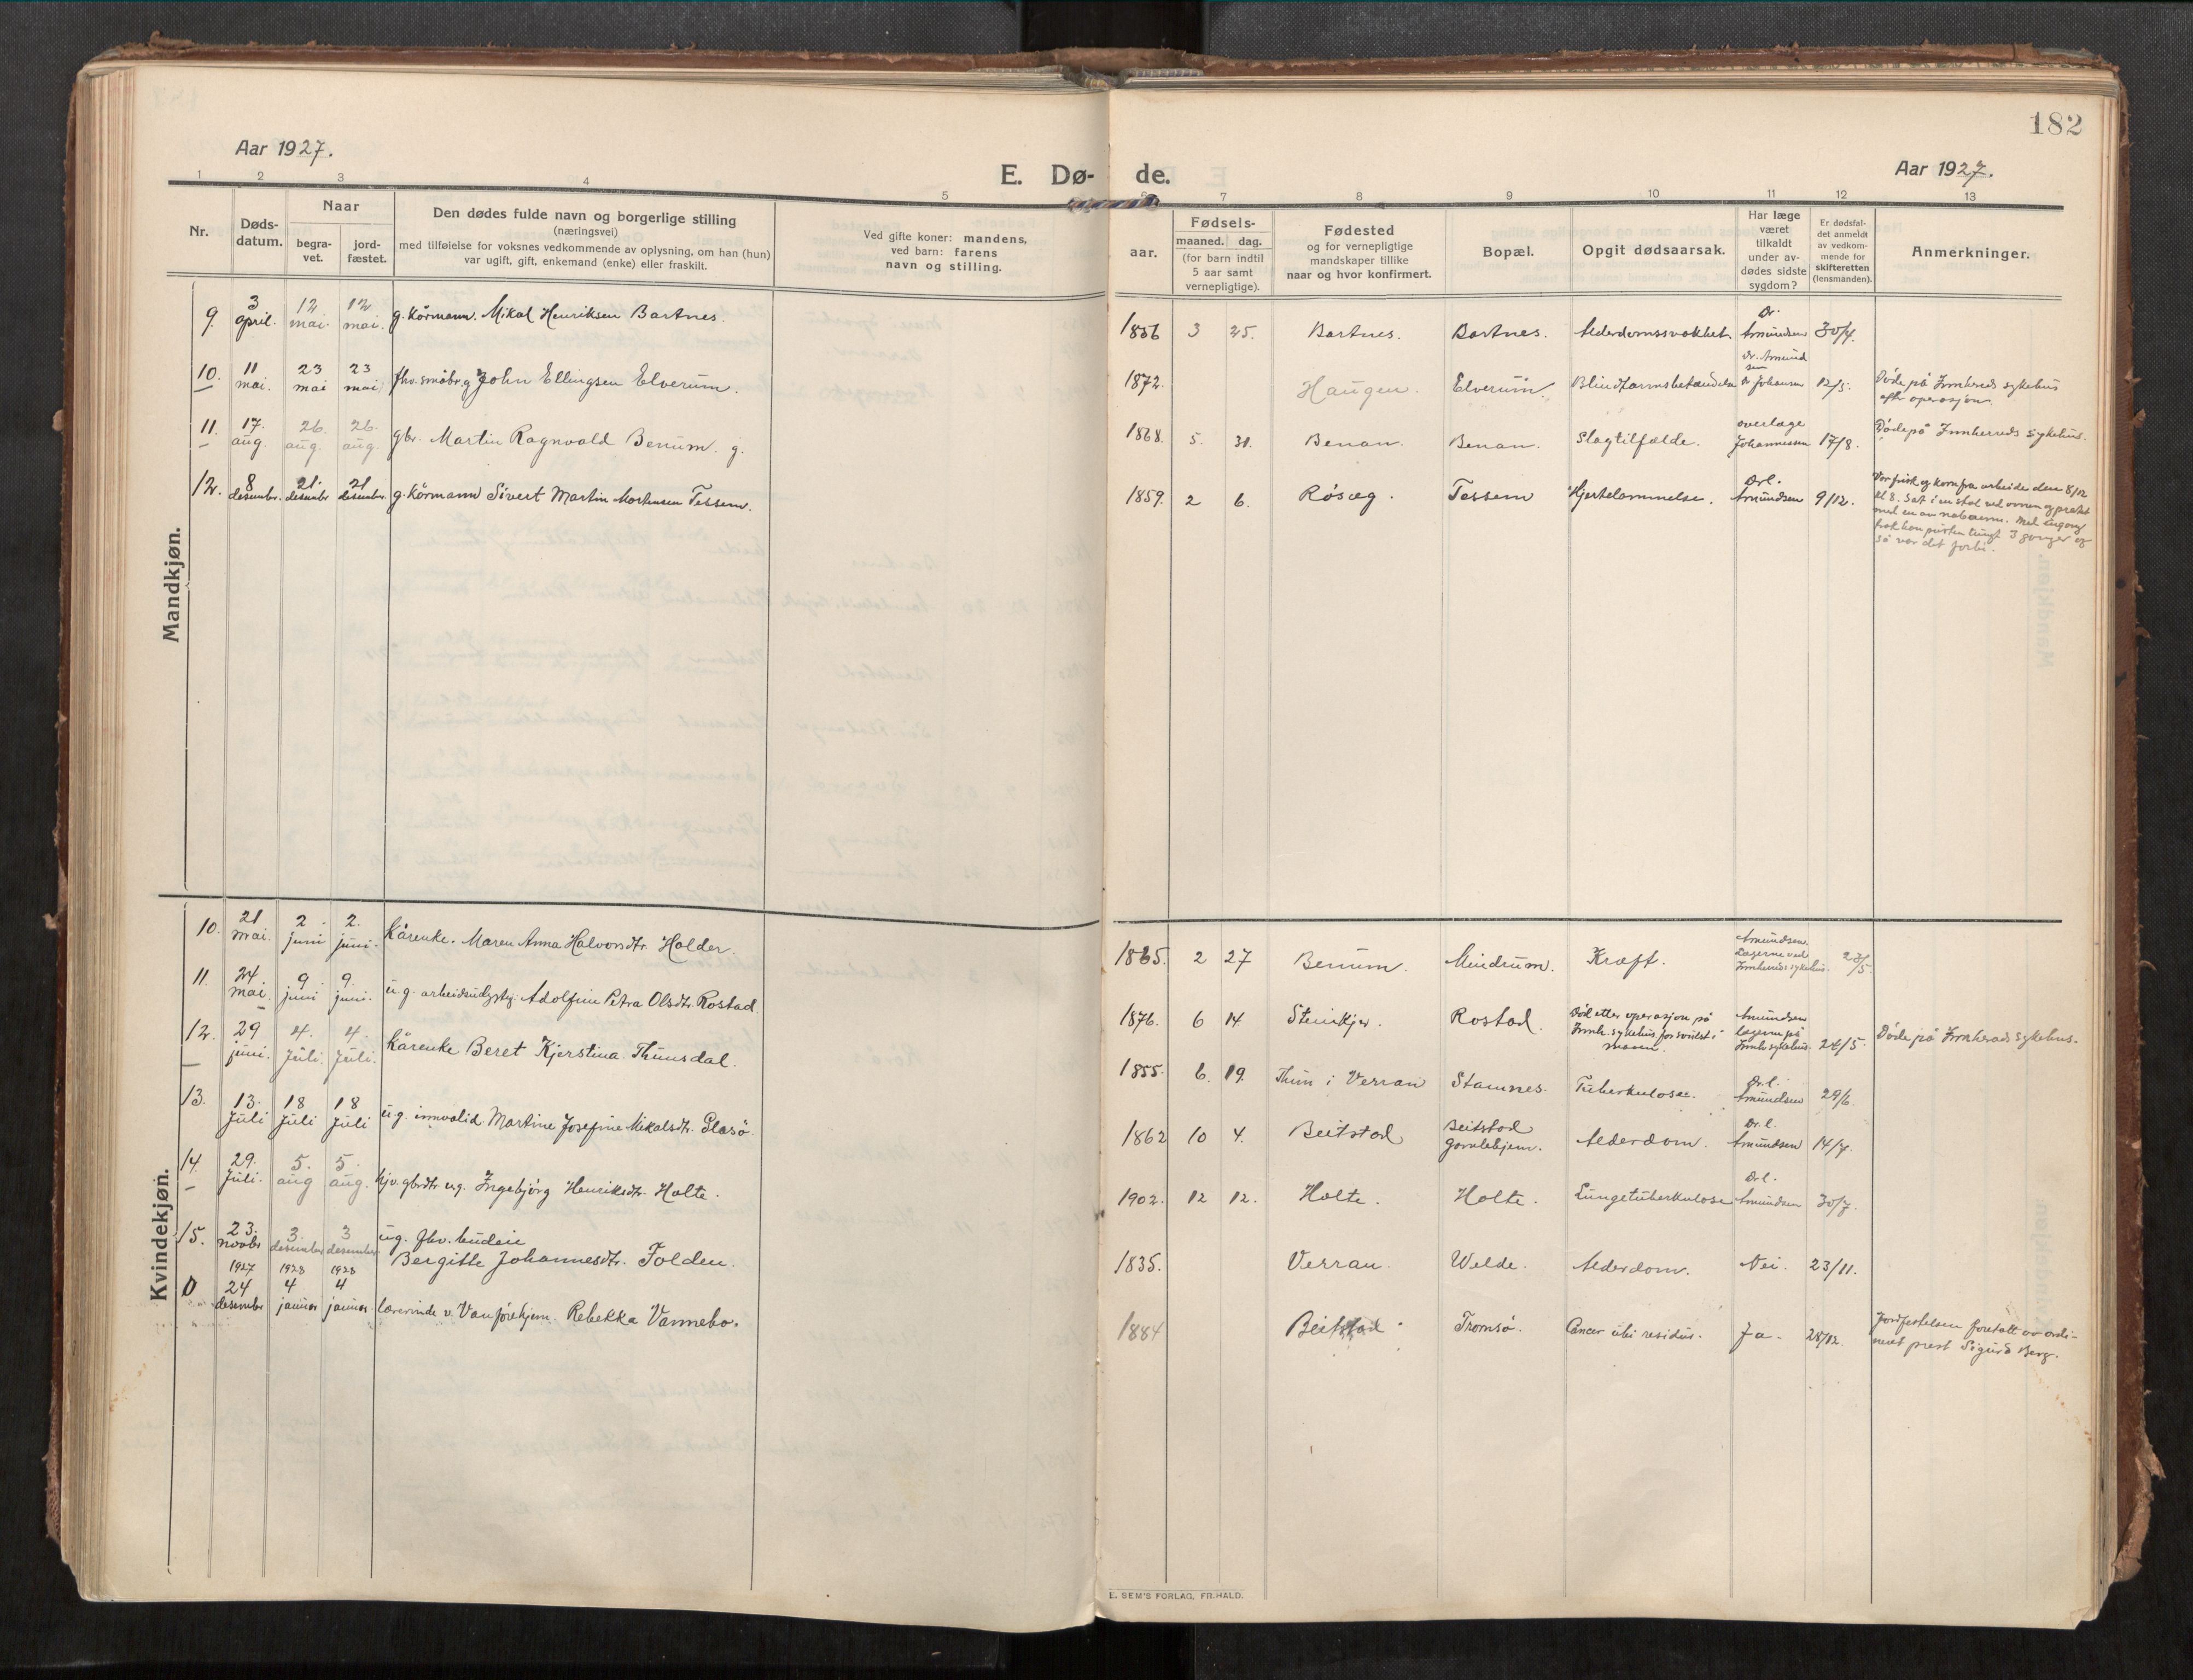 182
Aar 1927.
Aar 1927.
E. Dø- de.
1 2 3 4 5 6 7 8 9 10 11 12 13
Nr.
Døds-
datum.
Naar
begra-
vet.
jord-
fæstet.
Den dødes fulde navn og borgerlige stilling
(næringsvei)
med tilføielse for voksnes vedkommende av oplysning, om han (hun)
var ugift, gift, enkemand (enke) eller fraskilt.
Ved gifte koner: mandens,
ved barn: farens
navn og stilling.
aar.
Fødsels-
maaned. dag.
(for barn indtil
5 aar samt
vernepligtige).
Fødested
og for vernepligtige
mandskaper tillike
naar og hvor konfirmert.
Bopæl.
Opgit dødsaarsak.
Har læge
været
tilkaldt
under av-
dødes sidste
sygdom?
Er dødsfal-
det anmeldt
av vedkom-
mende for
skifteretten
(lensmanden).
Anmerkninger.
Mandkjøn.
9. 3 april. 12 mai. 12 mai. g. kårmann. Mikal Henriksen Bartnes. 1856 3 25. Bartnes. Bartnes. Alderdomssvakhet. Dr. Amundsen 30/4.
10. 11 mai. 23 mai 23 mai fhv. småbr. g John Ellingsen Elverum. 1872. Haugen. Elverum. Blindtarmsbetændelse Dr. Amundsen Dr Johansen 12/5. Døde på Innherads sykehus
efter operasjon.
11. 17. aug. 26. aug. 26. aug. gbr. Martin Ragnvald Benum. g. 1868. 5. 31. Benan. Benan. Slagtilfælde. overlæge Johannessen 17/8. Døde på Innherreds sykehus.
12. 8 desembr. 21. desembr 21 desembr. g. kårmann Sivert Martin Mortensen Tessem. 1859. 2 6. Røsæg. Tessem Hjertelammelse. Drl. Amundsen 9/12. Var frisk og kom fra arbeide den 8/12
kl 8. Sat i en stol ved ovnen og pratet
med en av naboerne. Med engang
trak han pusten tungt 3 ganger og
så var det forbi.
Kvindekjøn.
10. 21 mai. 2 juni 2. juni. Kårenke. Maren Anna Halvorsdtr. Holder. 1865. 2 27 Benum. Mindrum. Kræft. Amundsen. Lægerne ved Innherreds sykehus. 23/5.
11. 24 mai 9 juni 9. juni. ug. Adolfine Petra Olsdtr. Rostad. 1876. 6 14 Stenkjer. Rostad. Død etter operasjon på
Innh. sykehus for svulst i
maven. Amundsen lægerne på Innh sykehus. 24/5. Døde på Innherads sykehus.
12. 29 juni. 4. Juli. 4. Juli. Kårenke Beret Kjerstina Thunsdal. 1855. 6. 19. Thun i Verran Stamnes. Tuberkulose. Dr.l. Amundsen 29/6.
13. 13. Juli 18 Juli 18 Juli ug. innvalid Martine Josefine Mikalsdtr. Glasø. 1862 10 4. Beitstad Beitstad gamlehjem. Alderdom. Dr.l. Amundsen 14/7.
14. 29. Juli. 5. aug 5. aug. hjv. gbrdtr ug. Ingebjørg Henriksdtr. Holte. 1902. 12 12. Holte. Holte. Lungetuberkulose Dr.l. Amundsen 30/7.
15. 23. novbr 3. desember 3 desember ug. fhv. budeie
Bergitte Johannesdtr. Folden. 1835. Verran. Welde. Alderdom. Nei. 23/11.
0 1927 24 desembr 1928 4 januar 1928 4 januar. lærerinde v. Vanførehjem. Rebekka Vannebo. 1884 Beitstad. Tromsø. Cancer ubi residus. Ja. 28/12. Jordfestelsen foretatt av ordi-
nert prest Sigurd Berg.
E. SEM'S FORLAG, FR.HALD.